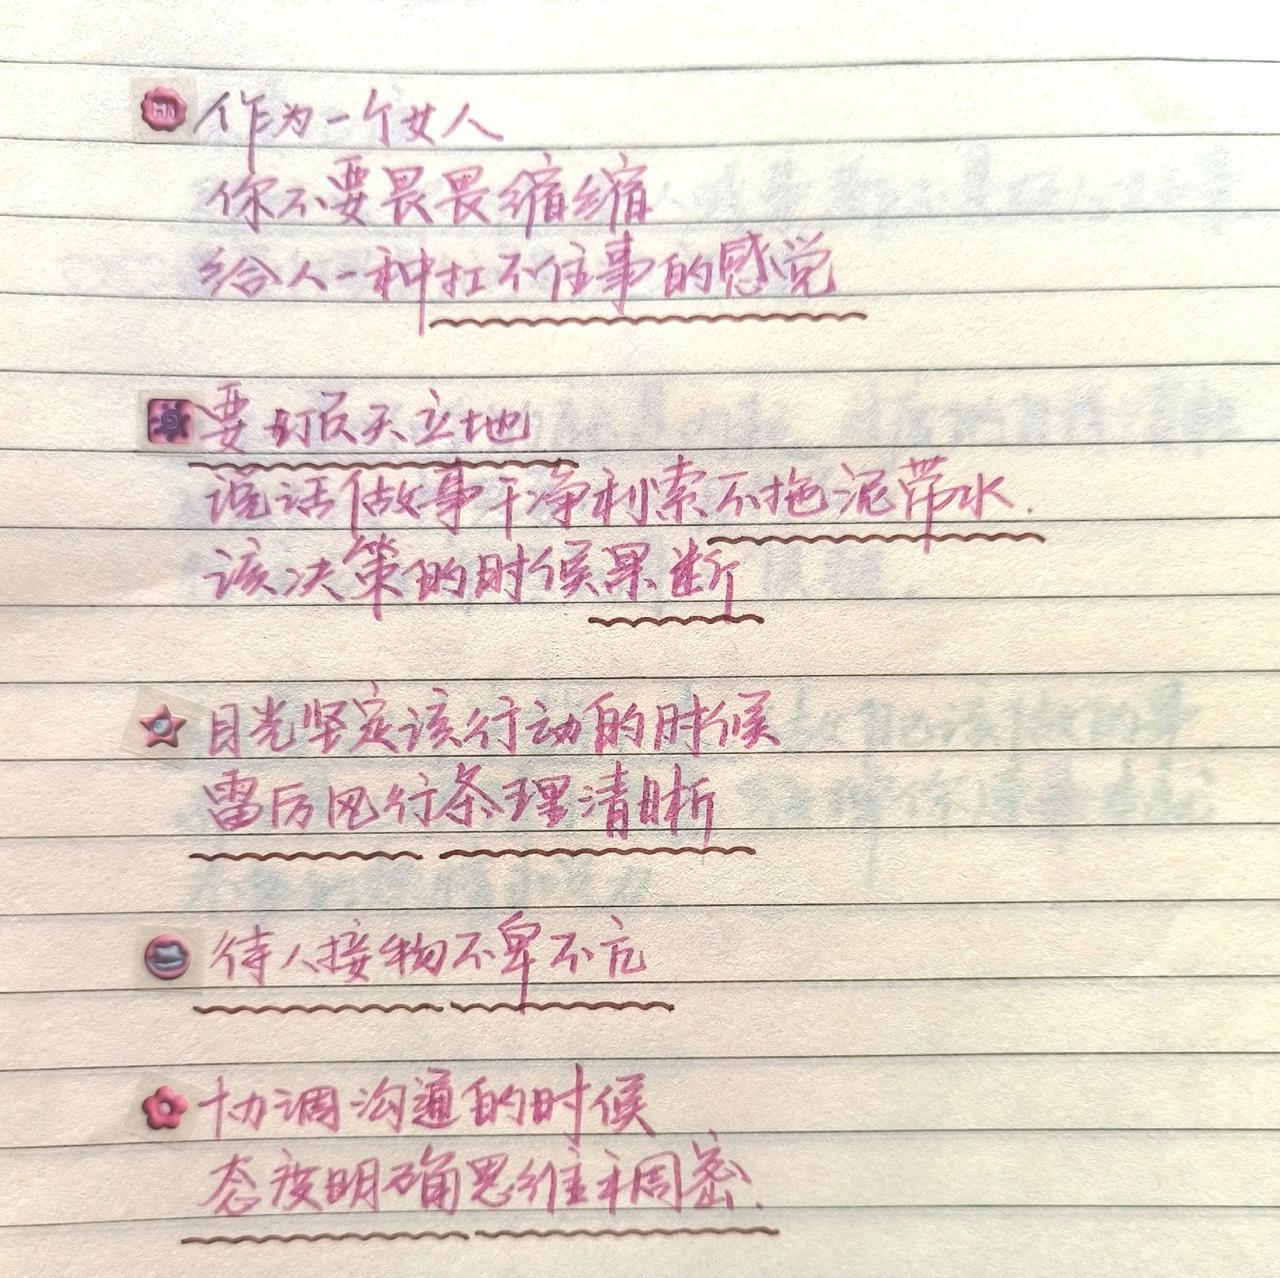 作为一个女人
你不要畏畏缩缩
给人一种扛不住事的感觉
要顶天立地
说话做事干净利索不拖泥带水.
该决策的时候果断
目光坚定该行动的时候
雷厉风行条理清晰
待人接物不卑不亢
协调沟通的时候
态度明确思维周密.